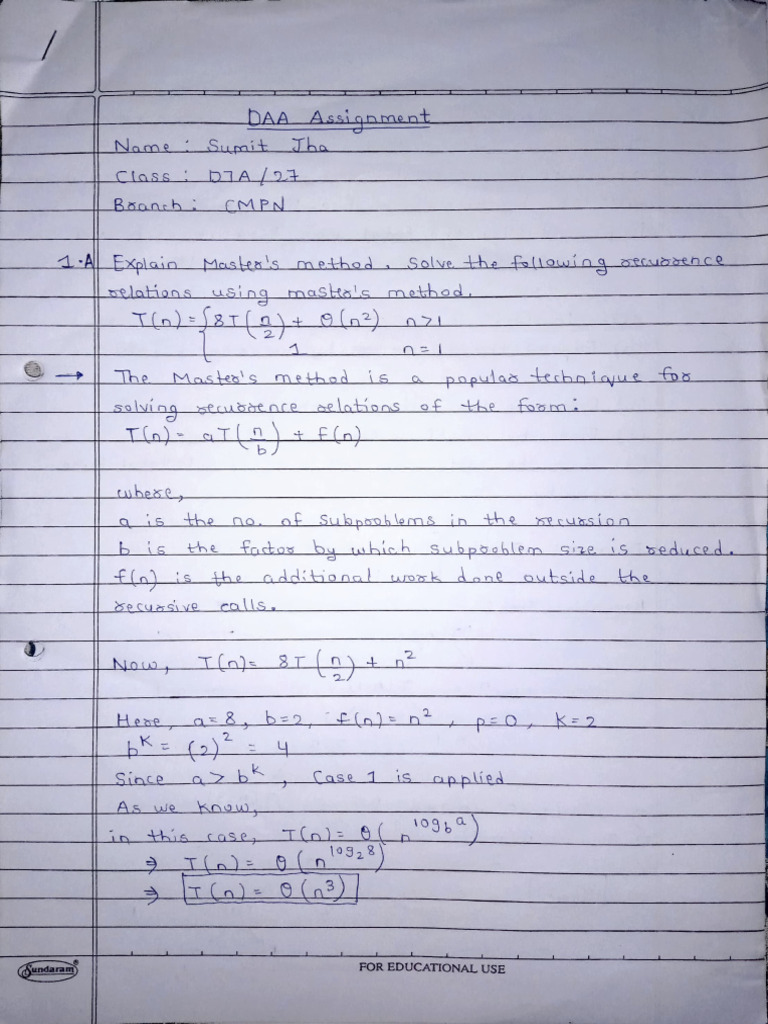 1
DAA Assignment
Name : Sumit Jha
Class : D7A / 27
Branch : CMPN
1.A Explain Master's method. Solve the following recurrence
relations using master's method.
T(n) = { 8T(n/2) + θ(n²) n>1
1 n=1
→ The Master's method is a popular technique for
solving recurrence relations of the form:
T(n) = aT(n/b) + f(n)
where,
a is the no. of subproblems in the recursion
b is the factor by which subproblem size is reduced.
f(n) is the additional work done outside the
recursive calls.
Now, T(n) = 8T(n/2) + n²
Here, a=8, b=2, f(n)=n², p=0, k=2
b^k = (2)² = 4
Since a > b^k, Case 1 is applied
As we know,
in this case, T(n) = θ(n^log_b a)
⇒ T(n) = θ(n^log_2 8)
⇒ T(n) = θ(n³)
Sundaram®
FOR EDUCATIONAL USE